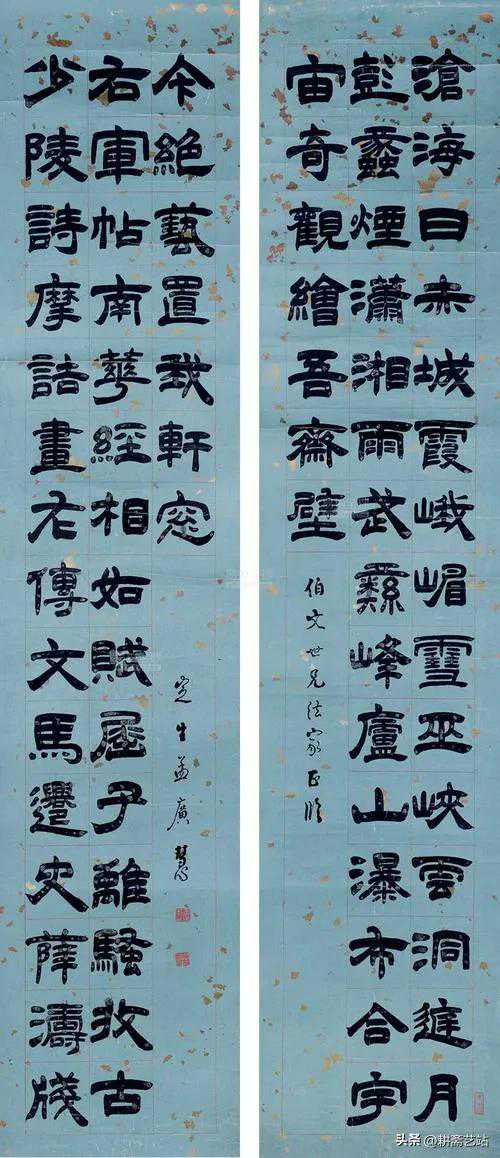 滄海日赤城霞峨嵋雪巫峽雲洞庭月
彭蠡煙瀟湘雨武彝峰廬山瀑布合宇
宙奇觀繪吾齋壁
伯文世兄法家正
少陵詩摩詰畫左傳文馬遷史薛濤牋
右軍帖南華經相如賦屈子離騷收古
今絕藝置我軒窓
定生孟廣慧
头条 @耕斋艺站